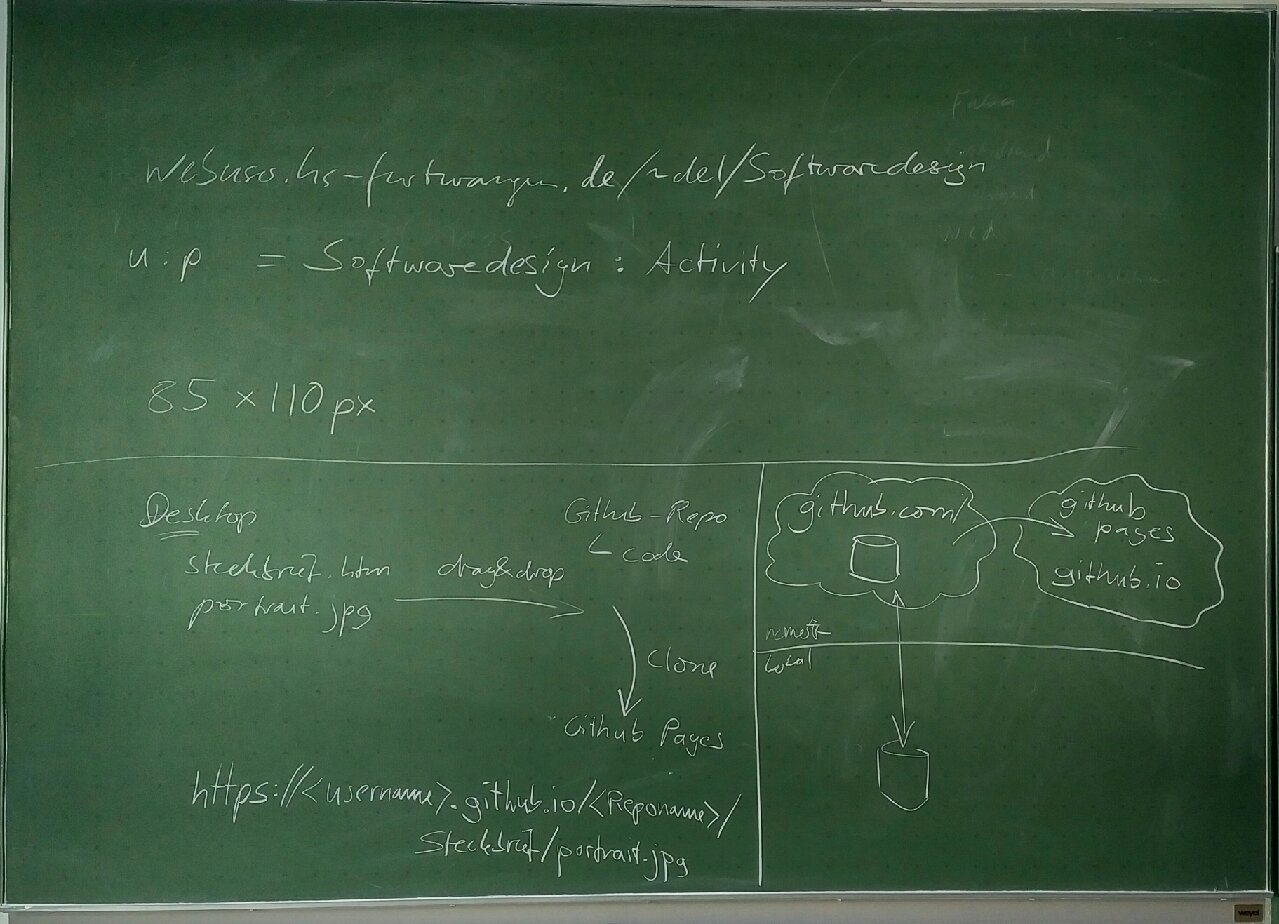 webuser.hs-furtwangen.de/~del/Softwaredesign
u:p = Softwaredesign : Activity
85 x 110 px
Desktop
steckbrief.htm
portrait.jpg
drag&drop
Github-Repo
code
Clone
Github Pages
https://<username>.github.io/<Reponame>/
Steckbrief/portrait.jpg
github.com/
github
pages
github.io
remote
local
weyel